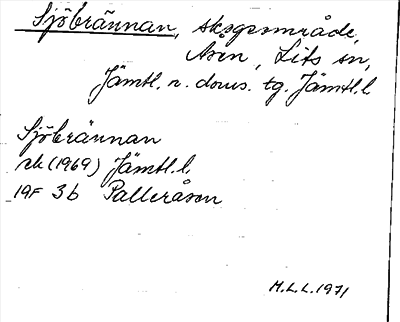 Sjöbrännan, skogsområde,
Åsen, Lits sn,
Jämtl. n. doms. tg. Jämtl. l.
Sjöbrännan
rk (1969) Jämtl. l.
19F 3b Palleråsen
M.L.L. 1971